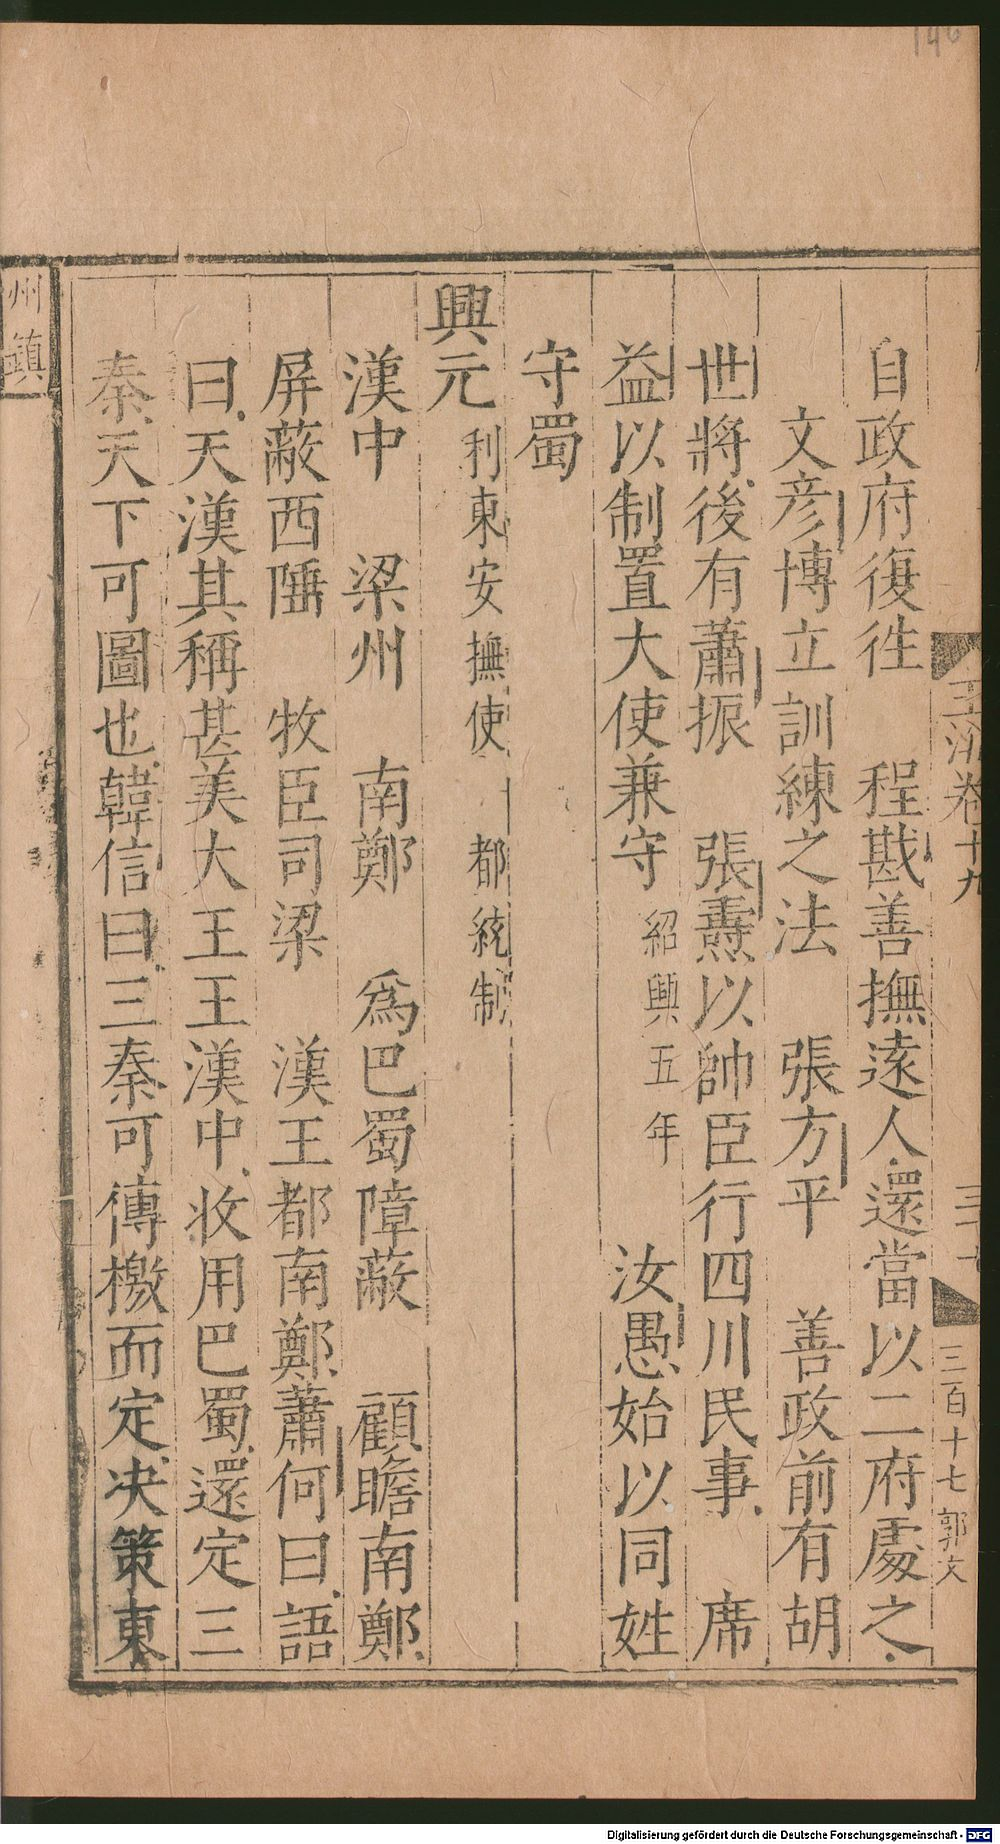 自政府復徃　程戡善撫遠人還當以二府處之
文彦博立訓練之法　張方平　善政前有胡
世將後有蕭振　張燾以帥臣行四川民事　席
益以制置大使兼守紹興五年　汝愚始以同姓
守蜀
興元利東安撫使　都統制
漢中　梁州　南鄭　爲巴蜀障蔽　顧瞻南鄭
屏蔽西陲　牧臣司梁　漢王都南鄭蕭何曰語
曰天漢其稱甚美大王王漢中收用巴蜀還定三
秦天下可圖也韓信曰三秦可傳檄而定决策東
卷十九
三百十七
郭文
州鎮
146
Digitalisierung gefördert durch die Deutsche Forschungsgemeinschaft - DFG